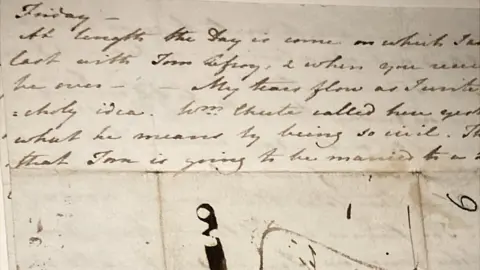 Friday —
At length the Day is come on which I am
last with Tom Lefroy, & when you rece
be over — — My tears flow as I write
=choly idea. Wm. Chute called here yes
what he means by being so civil. Th
that Tom is going to be married to a